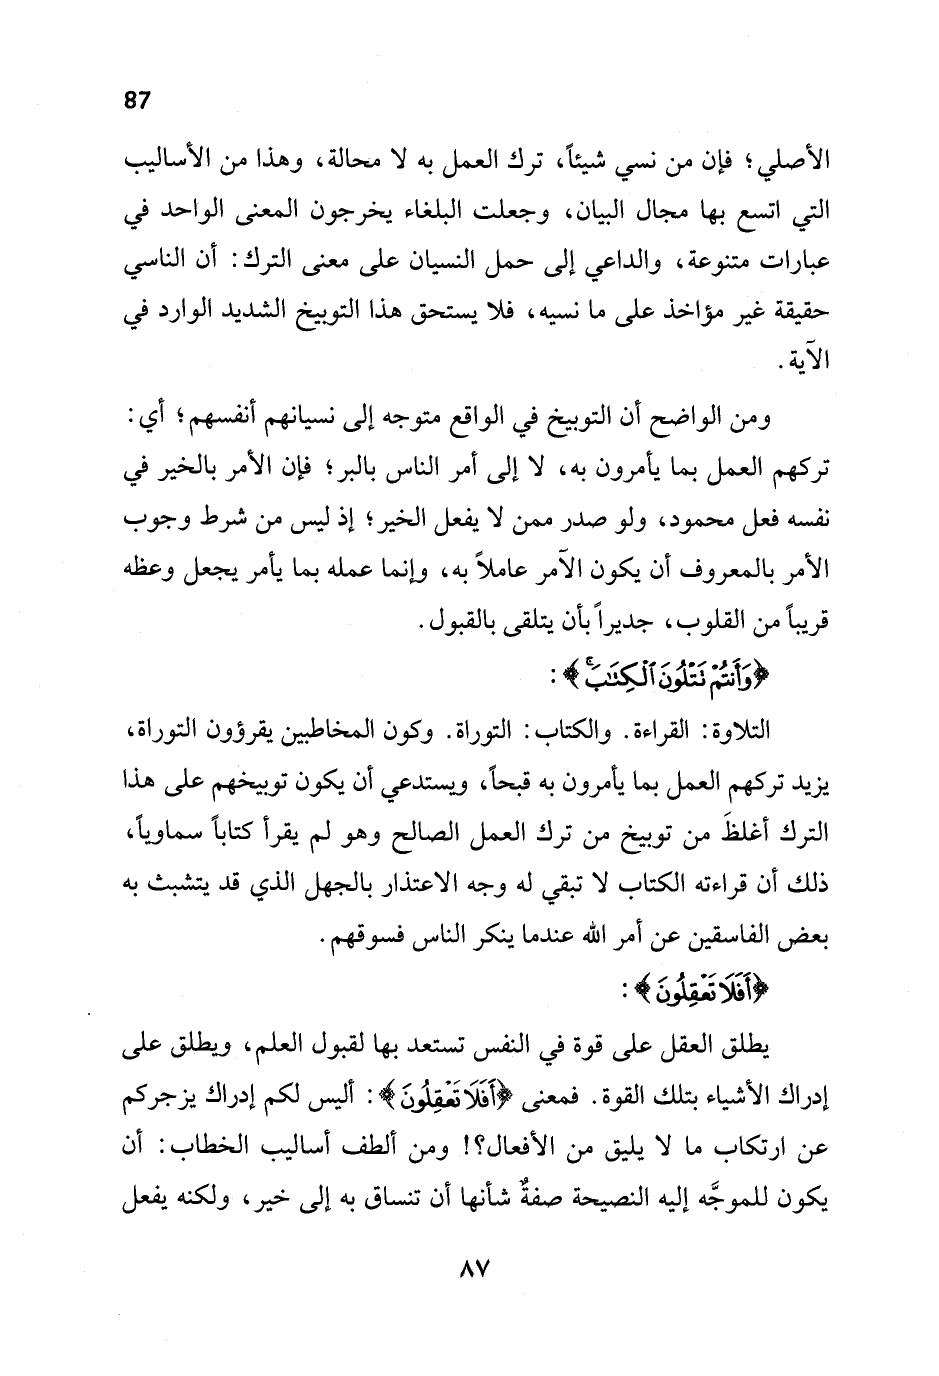 87
الأصلي؛ فإن من نسي شيئاً، ترك العمل به لا محالة، وهذا من الأساليب
التي اتسع بها مجال البيان، وجعلت البلغاء يخرجون المعنى الواحد في
عبارات متنوعة، والداعي إلى حمل النسيان على معنى الترك: أن الناسي
حقيقة غير مؤاخذ على ما نسيه، فلا يستحق هذا التوبيخ الشديد الوارد في
الآية.
ومن الواضح أن التوبيخ في الواقع متوجه إلى نسيانهم أنفسهم؛ أي:
تركهم العمل بما يأمرون به، لا إلى أمر الناس بالبر؛ فإن الأمر بالخير في
نفسه فعل محمود، ولو صدر ممن لا يفعل الخير؛ إذ ليس من شرط وجوب
الأمر بالمعروف أن يكون الآمر عاملاً به، وإنما عمله بما يأمر يجعل وعظه
قريباً من القلوب، جديراً بأن يتلقى بالقبول.
﴿وَأَنتُمْ تَتْلُونَ ٱلْكِتَٰبَ ۚ﴾:
التلاوة: القراءة. والكتاب: التوراة. وكون المخاطبين يقرؤون التوراة،
يزيد تركهم العمل بما يأمرون به قبحاً، ويستدعي أن يكون توبيخهم على هذا
الترك أغلظَ من توبيخ من ترك العمل الصالح وهو لم يقرأ كتاباً سماوياً،
ذلك أن قراءته الكتاب لا تبقي له وجه الاعتذار بالجهل الذي قد يتشبث به
بعض الفاسقين عن أمر الله عندما ينكر الناس فسوقهم.
﴿أَفَلَا تَعْقِلُونَ﴾:
يطلق العقل على قوة في النفس تستعد بها لقبول العلم، ويطلق على
إدراك الأشياء بتلك القوة. فمعنى ﴿أَفَلَا تَعْقِلُونَ﴾: أليس لكم إدراك يزجركم
عن ارتكاب ما لا يليق من الأفعال؟! ومن ألطف أساليب الخطاب: أن
يكون للموجَّه إليه النصيحة صفةٌ شأنها أن تنساق به إلى خير، ولكنه يفعل
٨٧